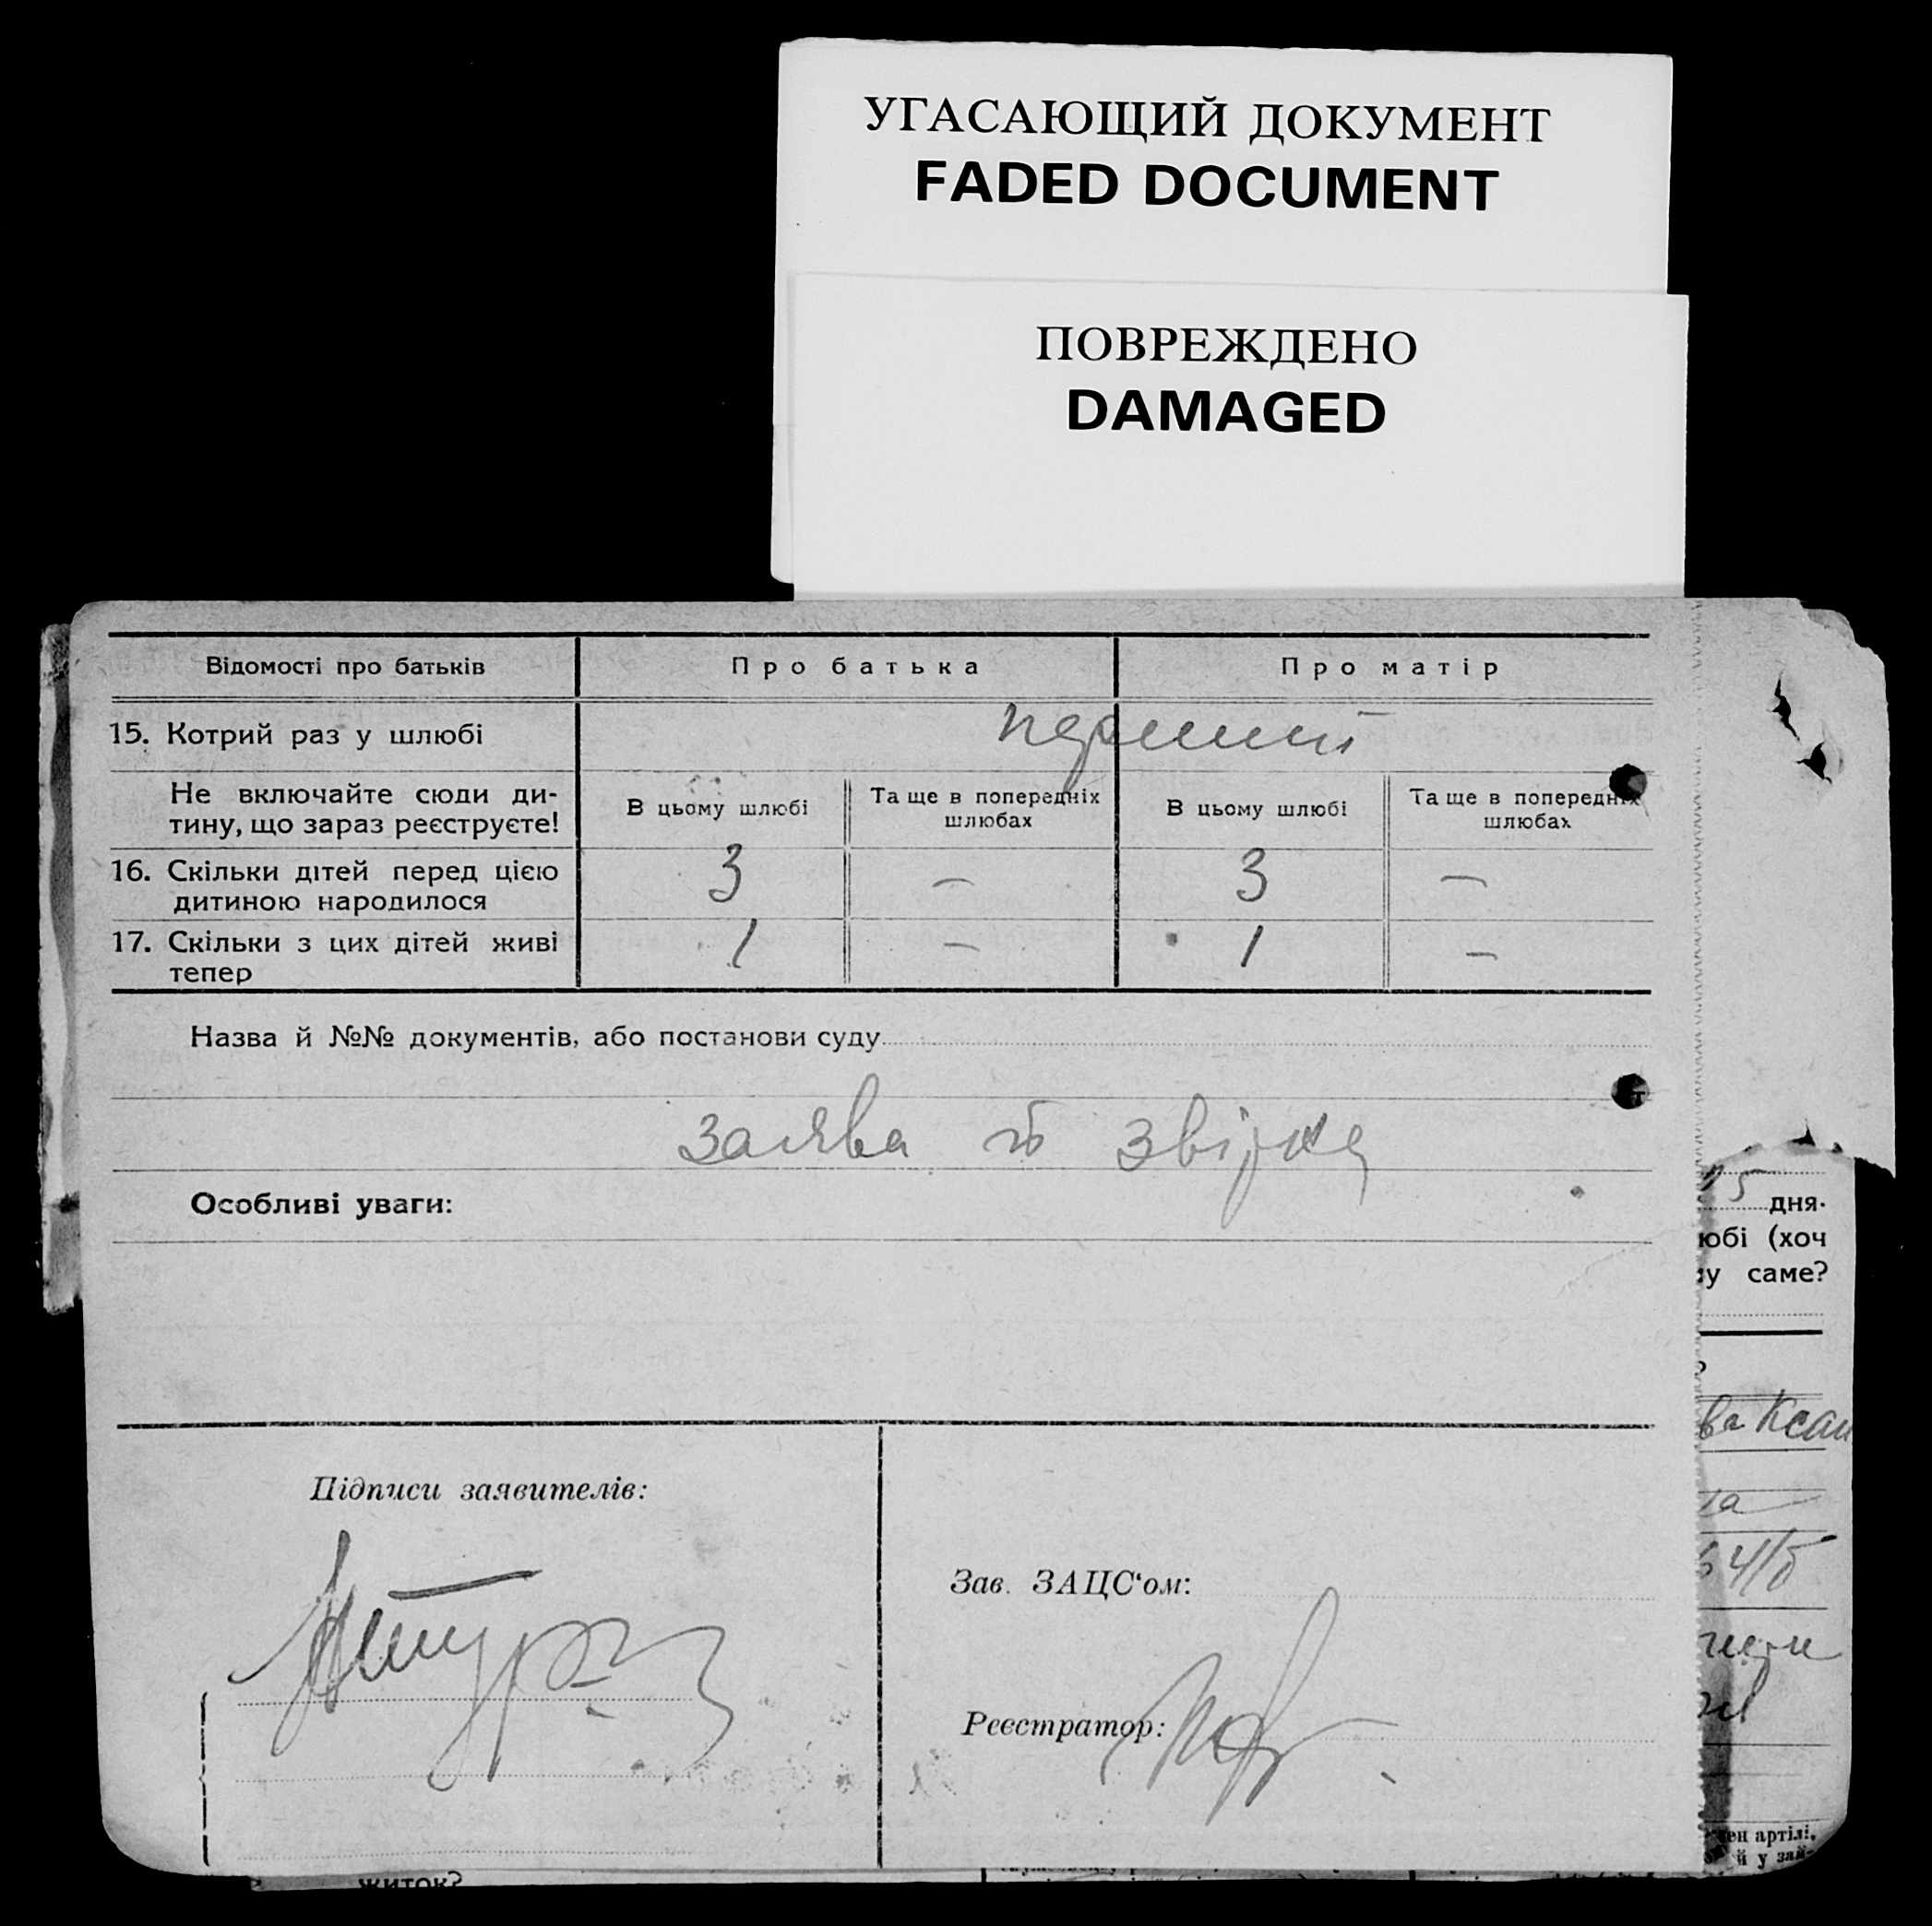 УГАСАЮЩИЙ ДОКУМЕНТ
FADED DOCUMENT
ПОВРЕЖДЕНО
DAMAGED
Відомості про батьків
Про батька
Про матір
15. Котрий раз у шлюбі
перший
Не включайте сюди ди-
тину, що зараз реєструєте!
В цьому шлюбі
Та ще в попередніх
шлюбах
В цьому шлюбі
Та ще в попередніх
шлюбах
16. Скільки дітей перед цією
дитиною народилося
3 — 3 —
17. Скільки з цих дітей живі
тепер
1 — 1 —
Назва й №№ документів, або постанови суду
заява й
Особливі уваги:
Підписи заявителів:
Зав. ЗАЦС‘ом:
Реєстратор:
5 дня.
юбі (хоч
у саме?
ва Ксан
ен артілі,
й у зай-
житок?